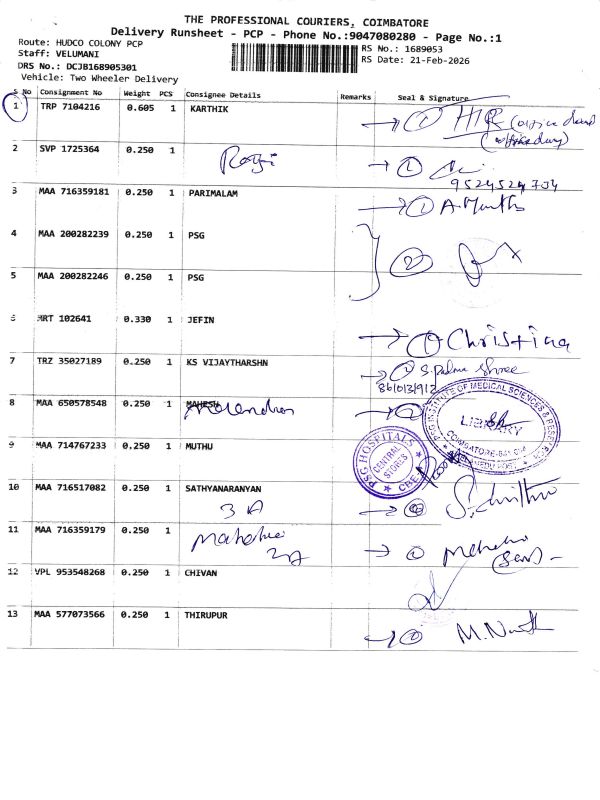 THE PROFESSIONAL COURIERS, COIMBATORE
Delivery Runsheet - PCP - Phone No.:9047080280 - Page No.:1
Route: HUDCO COLONY PCP
Staff: VELUMANI
DRS No.: DCJB168905301
Vehicle: Two Wheeler Delivery
RS No.: 1689053
RS Date: 21-Feb-2026
S No Consignment No Weight PCS Consignee Details Remarks Seal & Signature
1 TRP 7104216 0.605 1 KARTHIK
2 SVP 1725364 0.250 1
9524524704
3 MAA 716359181 0.250 1 PARIMALAM
4 MAA 200282239 0.250 1 PSG
5 MAA 200282246 0.250 1 PSG
102641 0.330 1 JEFIN
Christina
7 TRZ 35027189 0.250 1 KS VIJAYTHARSHN
8 MAA 650578548 0.250 1 MAHESH
PSG INSTITUTE OF MEDICAL SCIENCES & RESEARCH
LIBRARY
9 MAA 714767233 0.250 1 MUTHU
PSG HOSPITALS
CENTRAL STORES
10 MAA 716517082 0.250 1 SATHYANARANYAN
3 A
11 MAA 716359179 0.250 1
12 VPL 953548268 0.250 1 CHIVAN
13 MAA 577073566 0.250 1 THIRUPUR